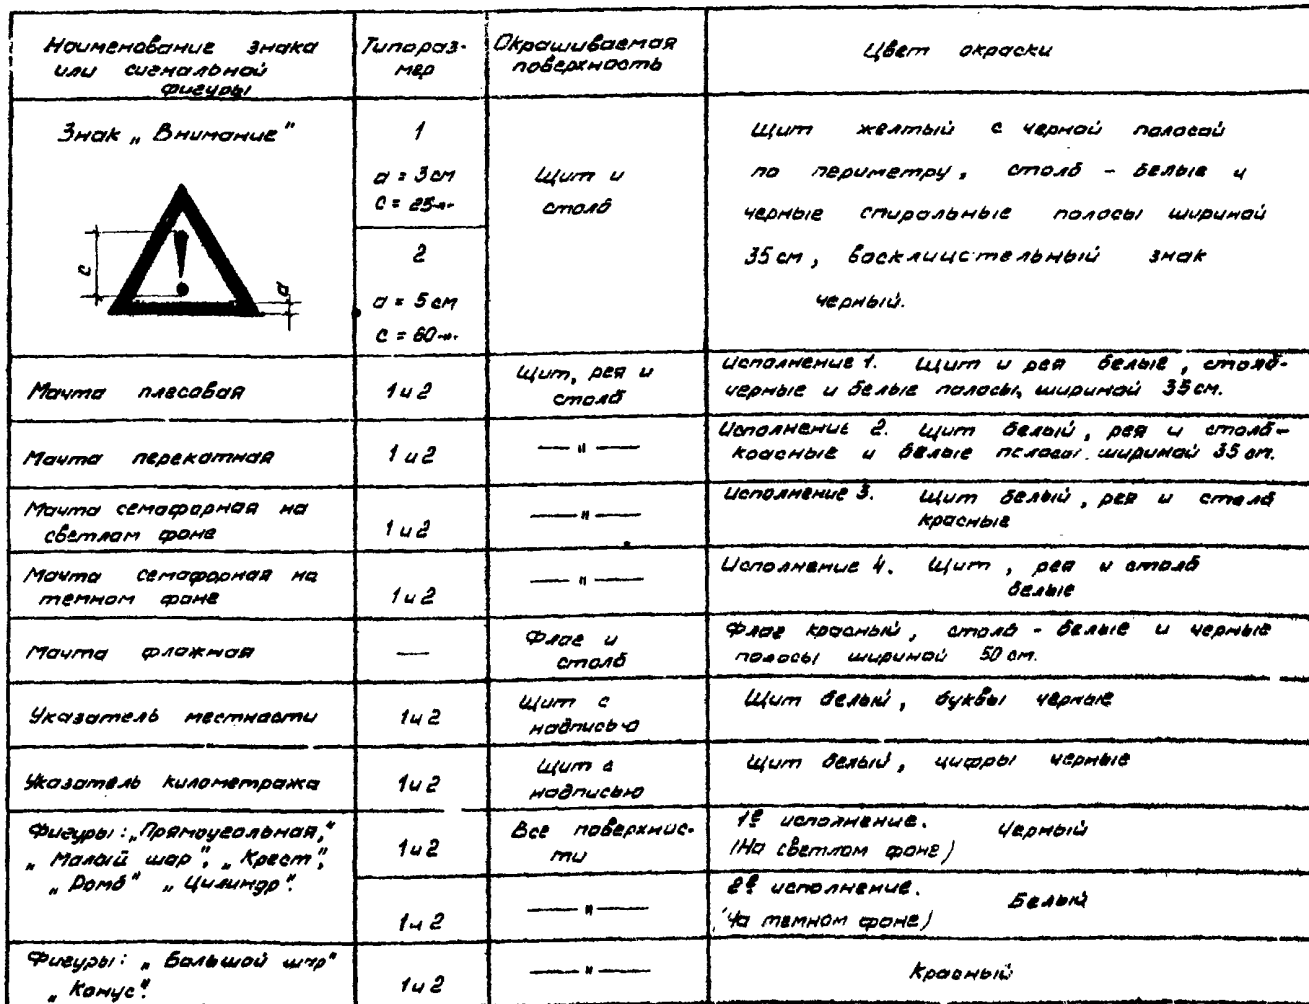 Наименование знака
или сигнальной
фигуры
Типораз-
мер
Окрашиваемая
поверхность
Цвет окраски
Знак „Внимание"
c
a
1
a = 3 см
c = 25
2
a = 5 см
c = 60
Щит и
столб
Щит желтый с черной полосой
по периметру, столб - белые и
черные спиральные полосы шириной
35 см, восклицательный знак
черный.
Мачта плесовая
1 и 2
Щит, рея и
столб
Исполнение 1. Щит и рея белые, столб-
черные и белые полосы, шириной 35 см.
Мачта перекатная
1 и 2
— " —
Исполнение 2. Щит белый, рея и столб-
красные и белые полосы шириной 35 см.
Мачта семафорная на
светлом фоне
1 и 2
— " —
Исполнение 3. Щит белый, рея и столб
красные
Мачта семафорная на
темном фоне
1 и 2
— " —
Исполнение 4. Щит, рея и столб
белые
Мачта флажная
—
Флаг и
столб
Флаг красный, столб - белые и черные
полосы шириной 50 см.
Указатель местности
1 и 2
Щит с
надписью
Щит белый, буквы черные
Указатель километража
1 и 2
Щит с
надписью
Щит белый, цифры черные
Фигуры: „Прямоугольная,"
„Малый шар", „Крест",
„Ромб" „Цилиндр".
1 и 2
Все поверхнос-
ти
1е исполнение.
(На светлом фоне)
Черный
1 и 2
— " —
2е исполнение.
(На темном фоне)
Белый
Фигуры: „Большой шар"
„Конус".
1 и 2
— " —
Красный